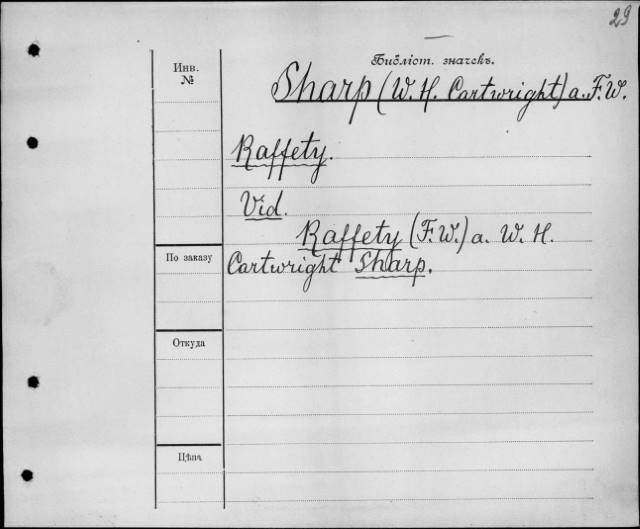 29
Библіот. значекъ.
Инв.
№
Sharp (W. H. Cartwright) a. F. W.
Raffety.
Vid.
Raffety (F. W.) a. W. H.
По заказу
Cartwright Sharp.
Откуда
Цѣна